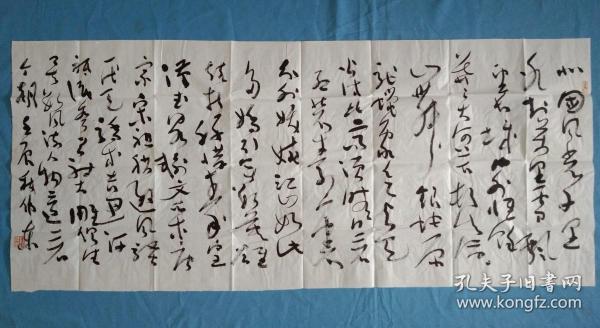 北国风光千里
冰封万里雪飘
望长城内外惟余
莽莽大河上下顿失滔滔
山舞银蛇原
驰蜡象欲与天公
试比高须晴日看
红装素裹分
外妖娆江山如此
多娇引无数英雄
竞折腰惜秦皇
汉武略输文采唐
宗宋祖稍逊风骚
一代天骄成吉思汗
只识弯弓射大雕俱往
矣数风流人物还看
今朝 壬辰秋伟东
孔夫子旧书网
www.kongfz.com